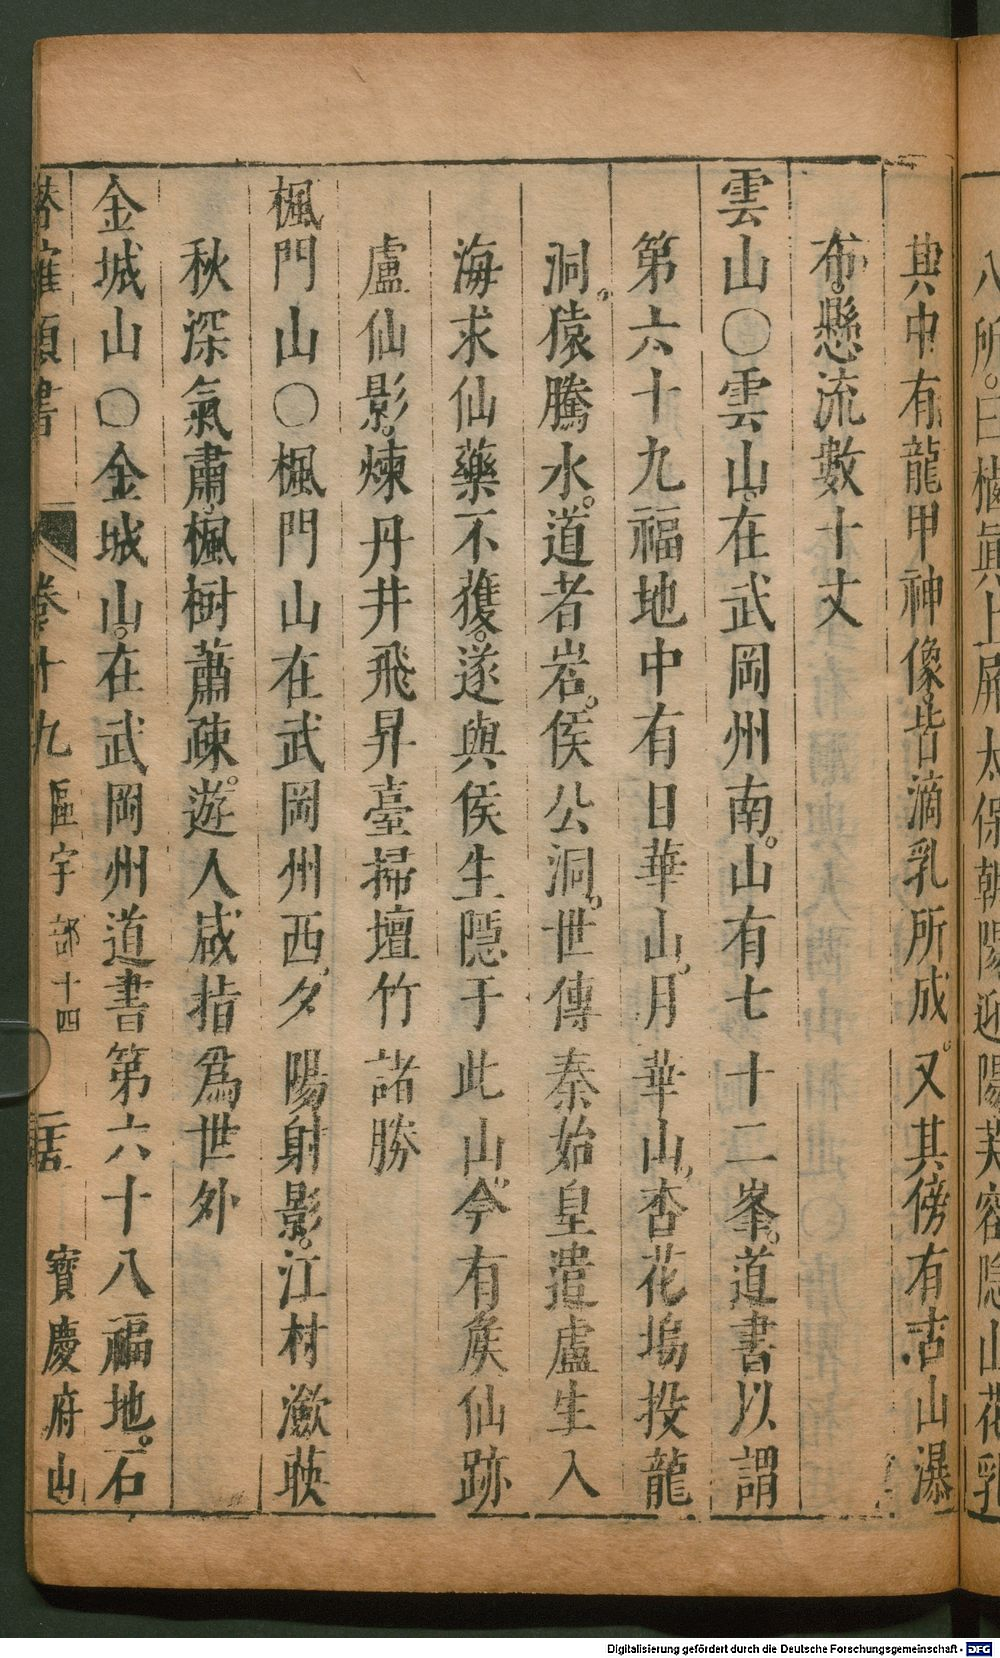 八所。曰棲眞上屏太保朝陽迎陽芙容隱山花乳
其中有龍甲神像皆滴乳所成。又其傍有古山瀑
布懸流數十丈
雲山○雲山。在武岡州南。山有七十二峯。道書以謂
第六十九福地中有日華山。月華山。杏花塢投龍
洞。猿騰水。道者岩。侯公洞。世傳秦始皇遣盧生入
海求仙藥不獲。遂與侯生隱于此山。今有矦仙跡
盧仙影。煉丹井飛昇臺掃壇竹諸勝
楓門山○楓門山在武岡州西。夕陽射影。江村瀲䀹
秋深氣肅。楓樹蕭疎。遊人咸指爲世外
金城山○金城山。在武岡州道書第六十八福地。石
潛確類書 卷十九 區宇部十四 寶慶府山
Digitalisierung gefördert durch die Deutsche Forschungsgemeinschaft - DFG